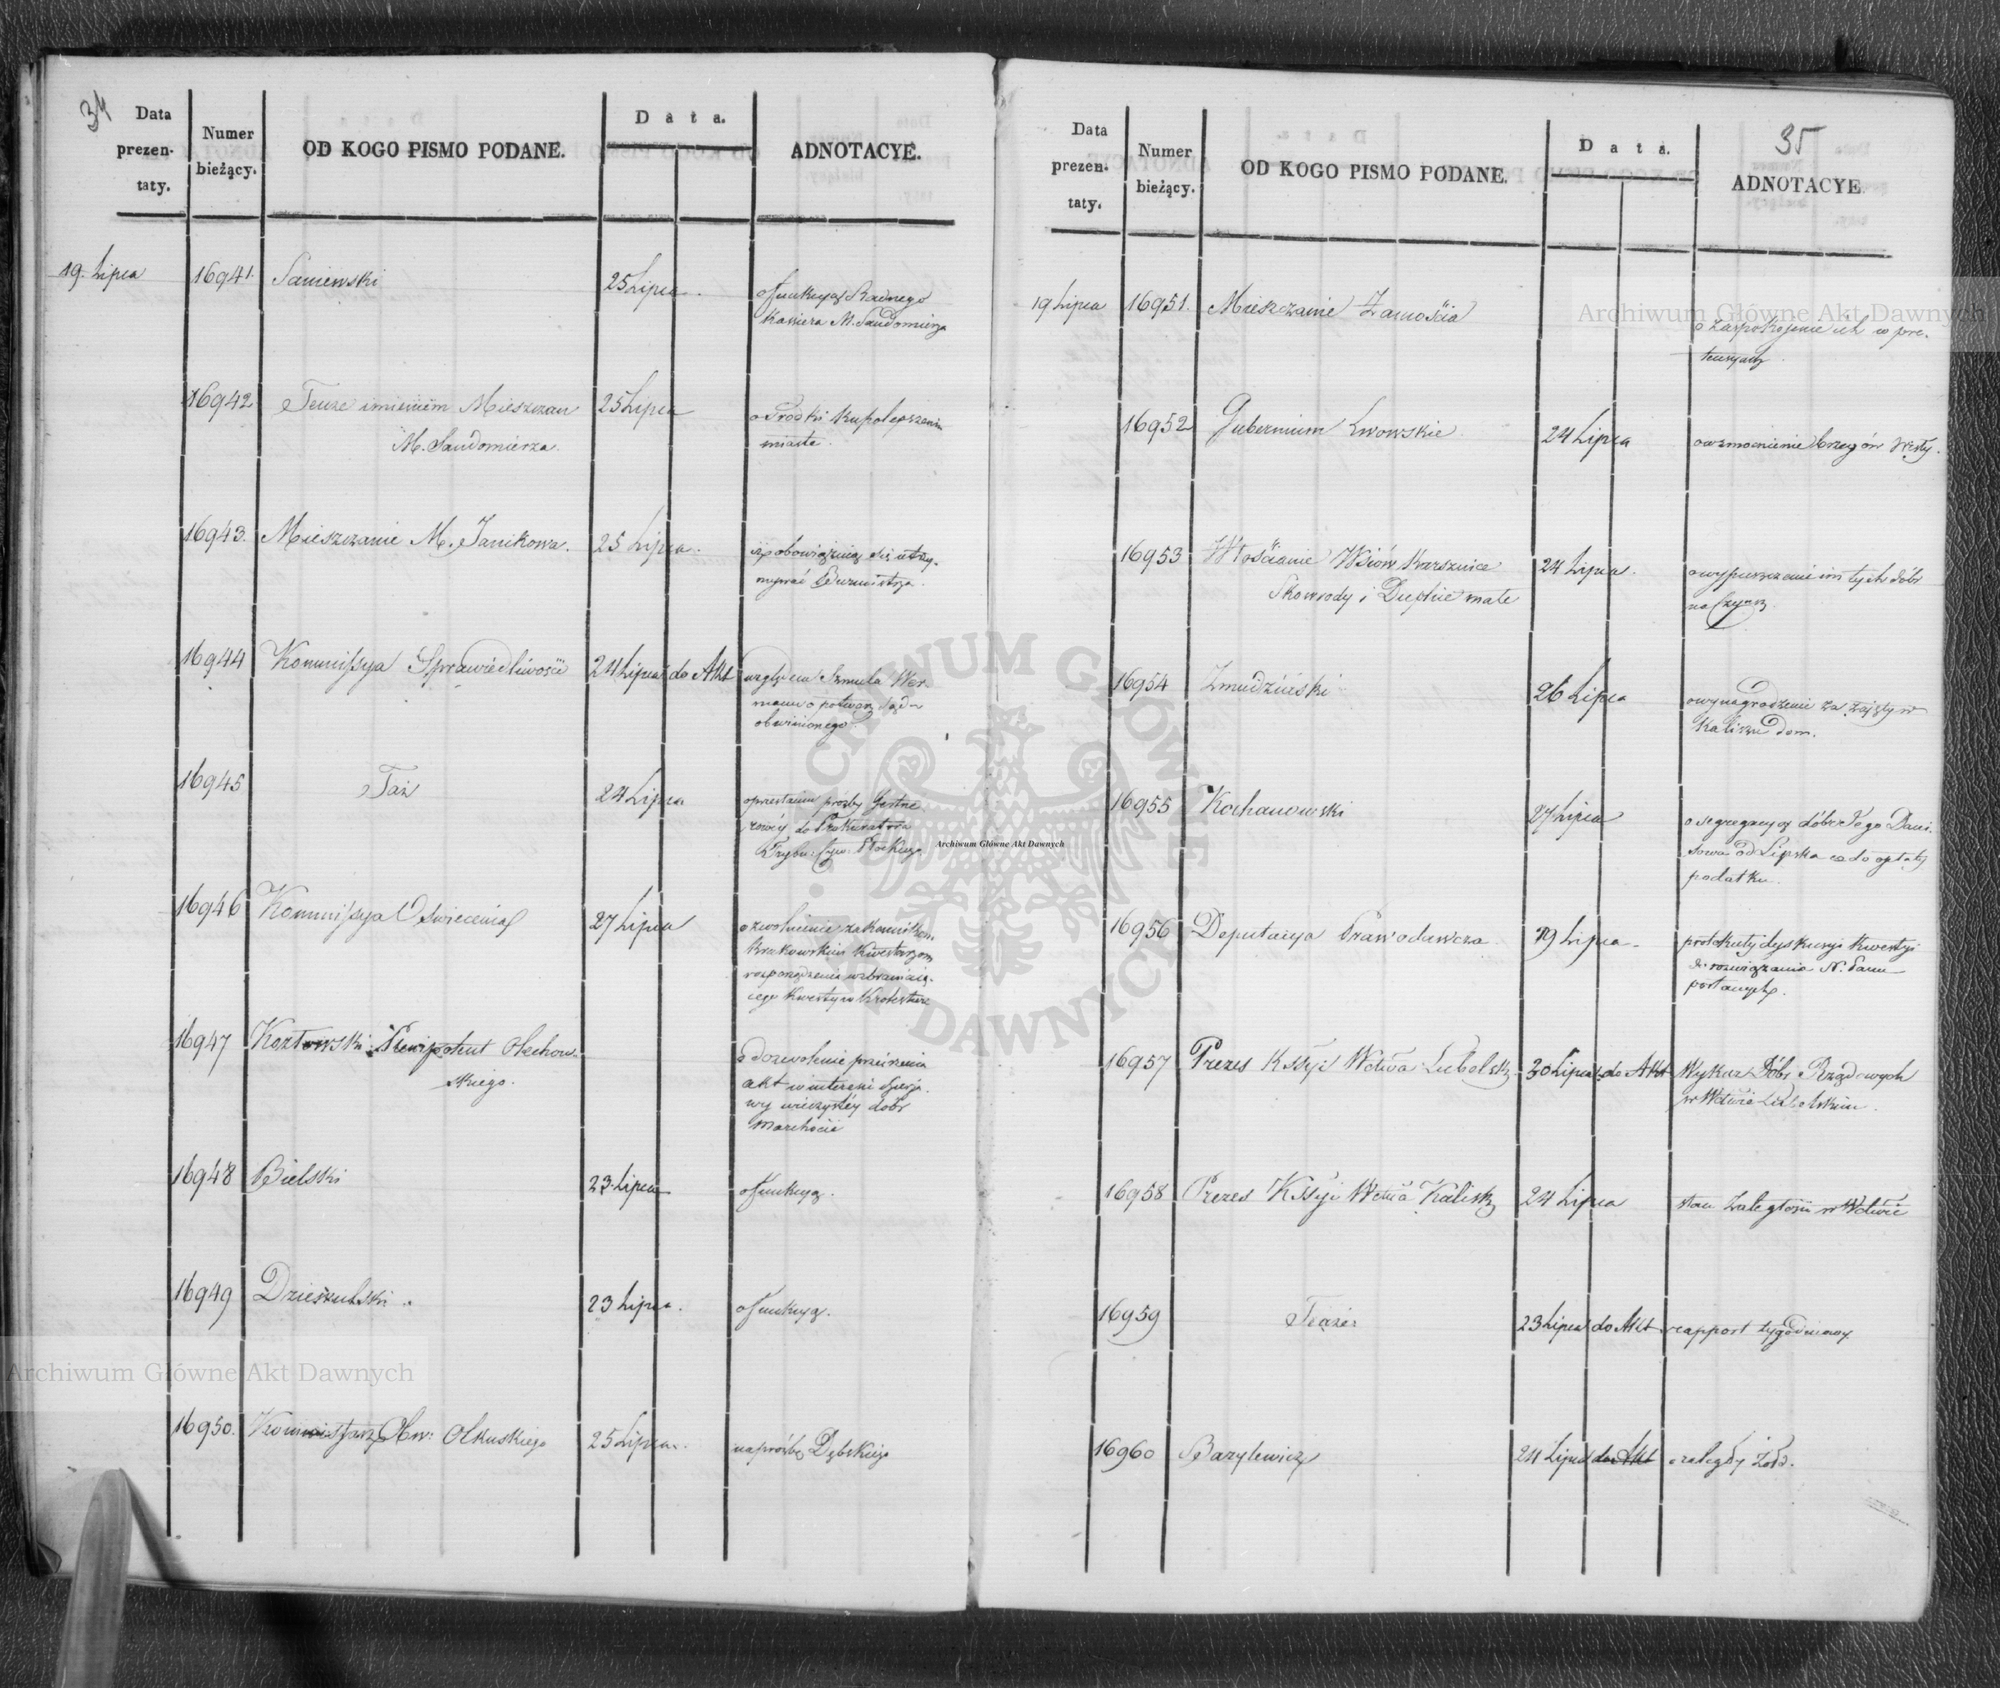 34
Data prezentaty.
Numer bieżący.
OD KOGO PISMO PODANE.
Data.
ADNOTACYE.
19. Lipca 16941. Saniewski 25 Lipca.
o funkcyą Radnego
Kassiera M. Sandomierza
16942 Tenże imieniem Mieszczan 25 Lipca
M. Sandomierza.
o środki ku polepszeniu
miasta.
16943. Mieszczanie M. Janikowa. 25 Lipca.
obowiązuią się utrzy-
mywać Burmistrza.
16944 Kommissya Sprawiedliwości 24 Lipca do Akt
względem Szmula Wer-
mana o potwarz Sądu
obwinionego.
16945 Taż 24 Lipca
prośby
do Prokuratora
Trybu: Cyw:
16946 Kommissya Oświecenia 27 Lipca
o zwolnienie zakonnikom
Krakowskim Kwestarzom
rozporządzenia wzbraniaią-
cego Kwesty w Królestwie
16947 Kozłowski Plenipotent Olechow-
skiego.
o dozwolenie przeirzenia
akt w interesie dzierża-
wy wieczystéy dóbr
Marchocic
16948 Bielski 23. Lipca o funkcyą.
16949 Dzieszulski. 23 Lipca. o funkcyą.
16950. Kommissarz Obw: Olkuskiego 25 Lipca. na prośbę Dębskiego
35
Data prezentaty.
Numer bieżący.
OD KOGO PISMO PODANE.
Data.
ADNOTACYE
19 Lipca 16951. Mieszczanie Zamościa
o zaspokojenie ich w pre-
tensyach.
16952 Gubernium Lwowskie 24 Lipca o wzmocnienie brzegów Wisły.
16953 Włościanie Wsiów Karsznice 24 Lipca.
Skowrody i Duplice małe
o wypuszczenie im tych dóbr
na Czynsz.
16954 Zmudziński 26 Lipca
o wynagrodzenie za zajęty w
Kaliszu dom.
16955 Kochanowski 27 Lipca
o segregacyą dóbr Jego Dani-
szowa od Lipska co do opłaty
podatku.
16956 Deputacya Prawodawcza 29 Lipca.
protokuły dyskusyi Kwestyi
do rozwiązania N. Panu
podanych.
16957 Prezes Kssyi Wdztwa Lubelsk. 30 Lipca do Akt Wykaz Dóbr Rządowych
w Wdztwie Lubelskim.
16958 Prezes Kssyi Wdztwa Kalisk 24 Lipca stan Zaległości w Wdztwie
16959 Tenże 23 Lipca do Akt rapport tygodniowy
16960 Bazylewicz 24 Lipca do Akt o zaległy Żołd.
Archiwum Główne Akt Dawnych
Archiwum Główne Akt Dawnych
Archiwum Główne Akt Dawnych
ARCHIWUM GŁÓWNE AKT DAWNYCH